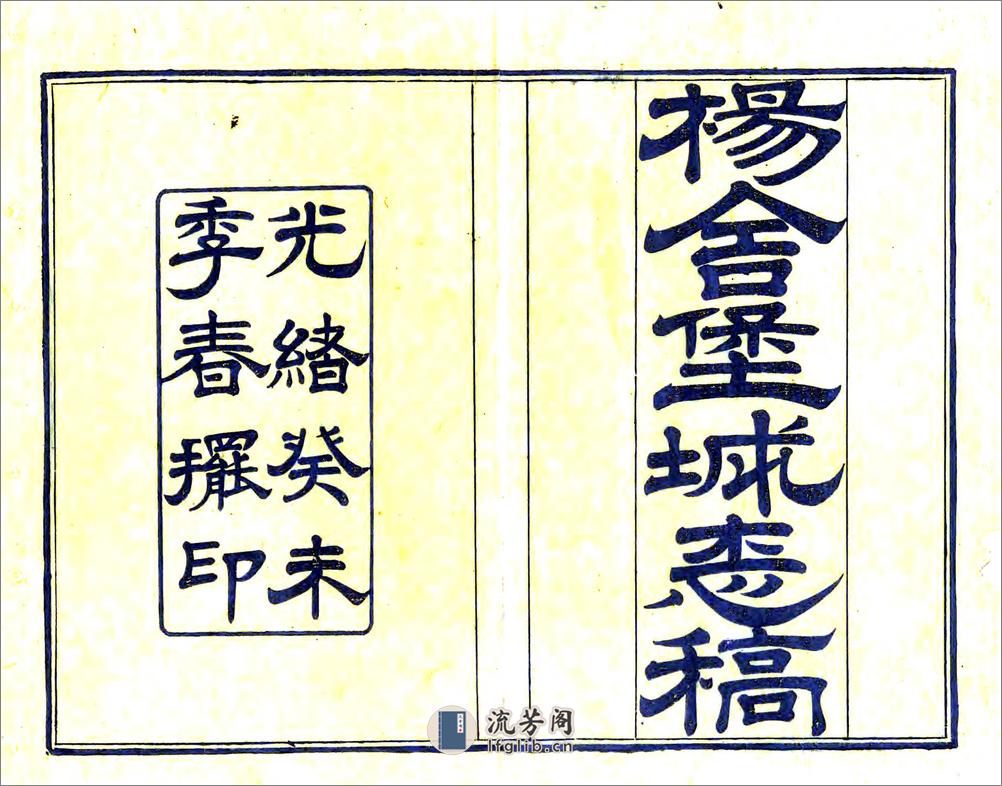 楊舍堡城志稿
光緒癸未
季春擺印
流芳阁
lfglib.cn